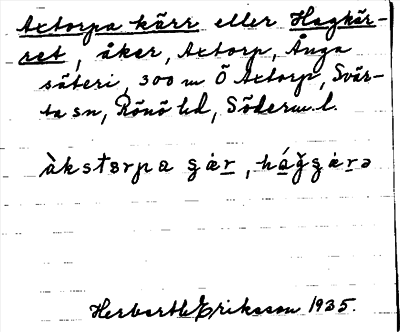 Axtorpa kärr eller Hagkär-
ret, åker, Axtorp, Ånga
säteri, 300 m Ö Axtorp, Svär-
ta sn, Rönö hd, Söderm. l.
àkstɒrpa çær, hág̊çærə
Herbert Eriksson 1935.